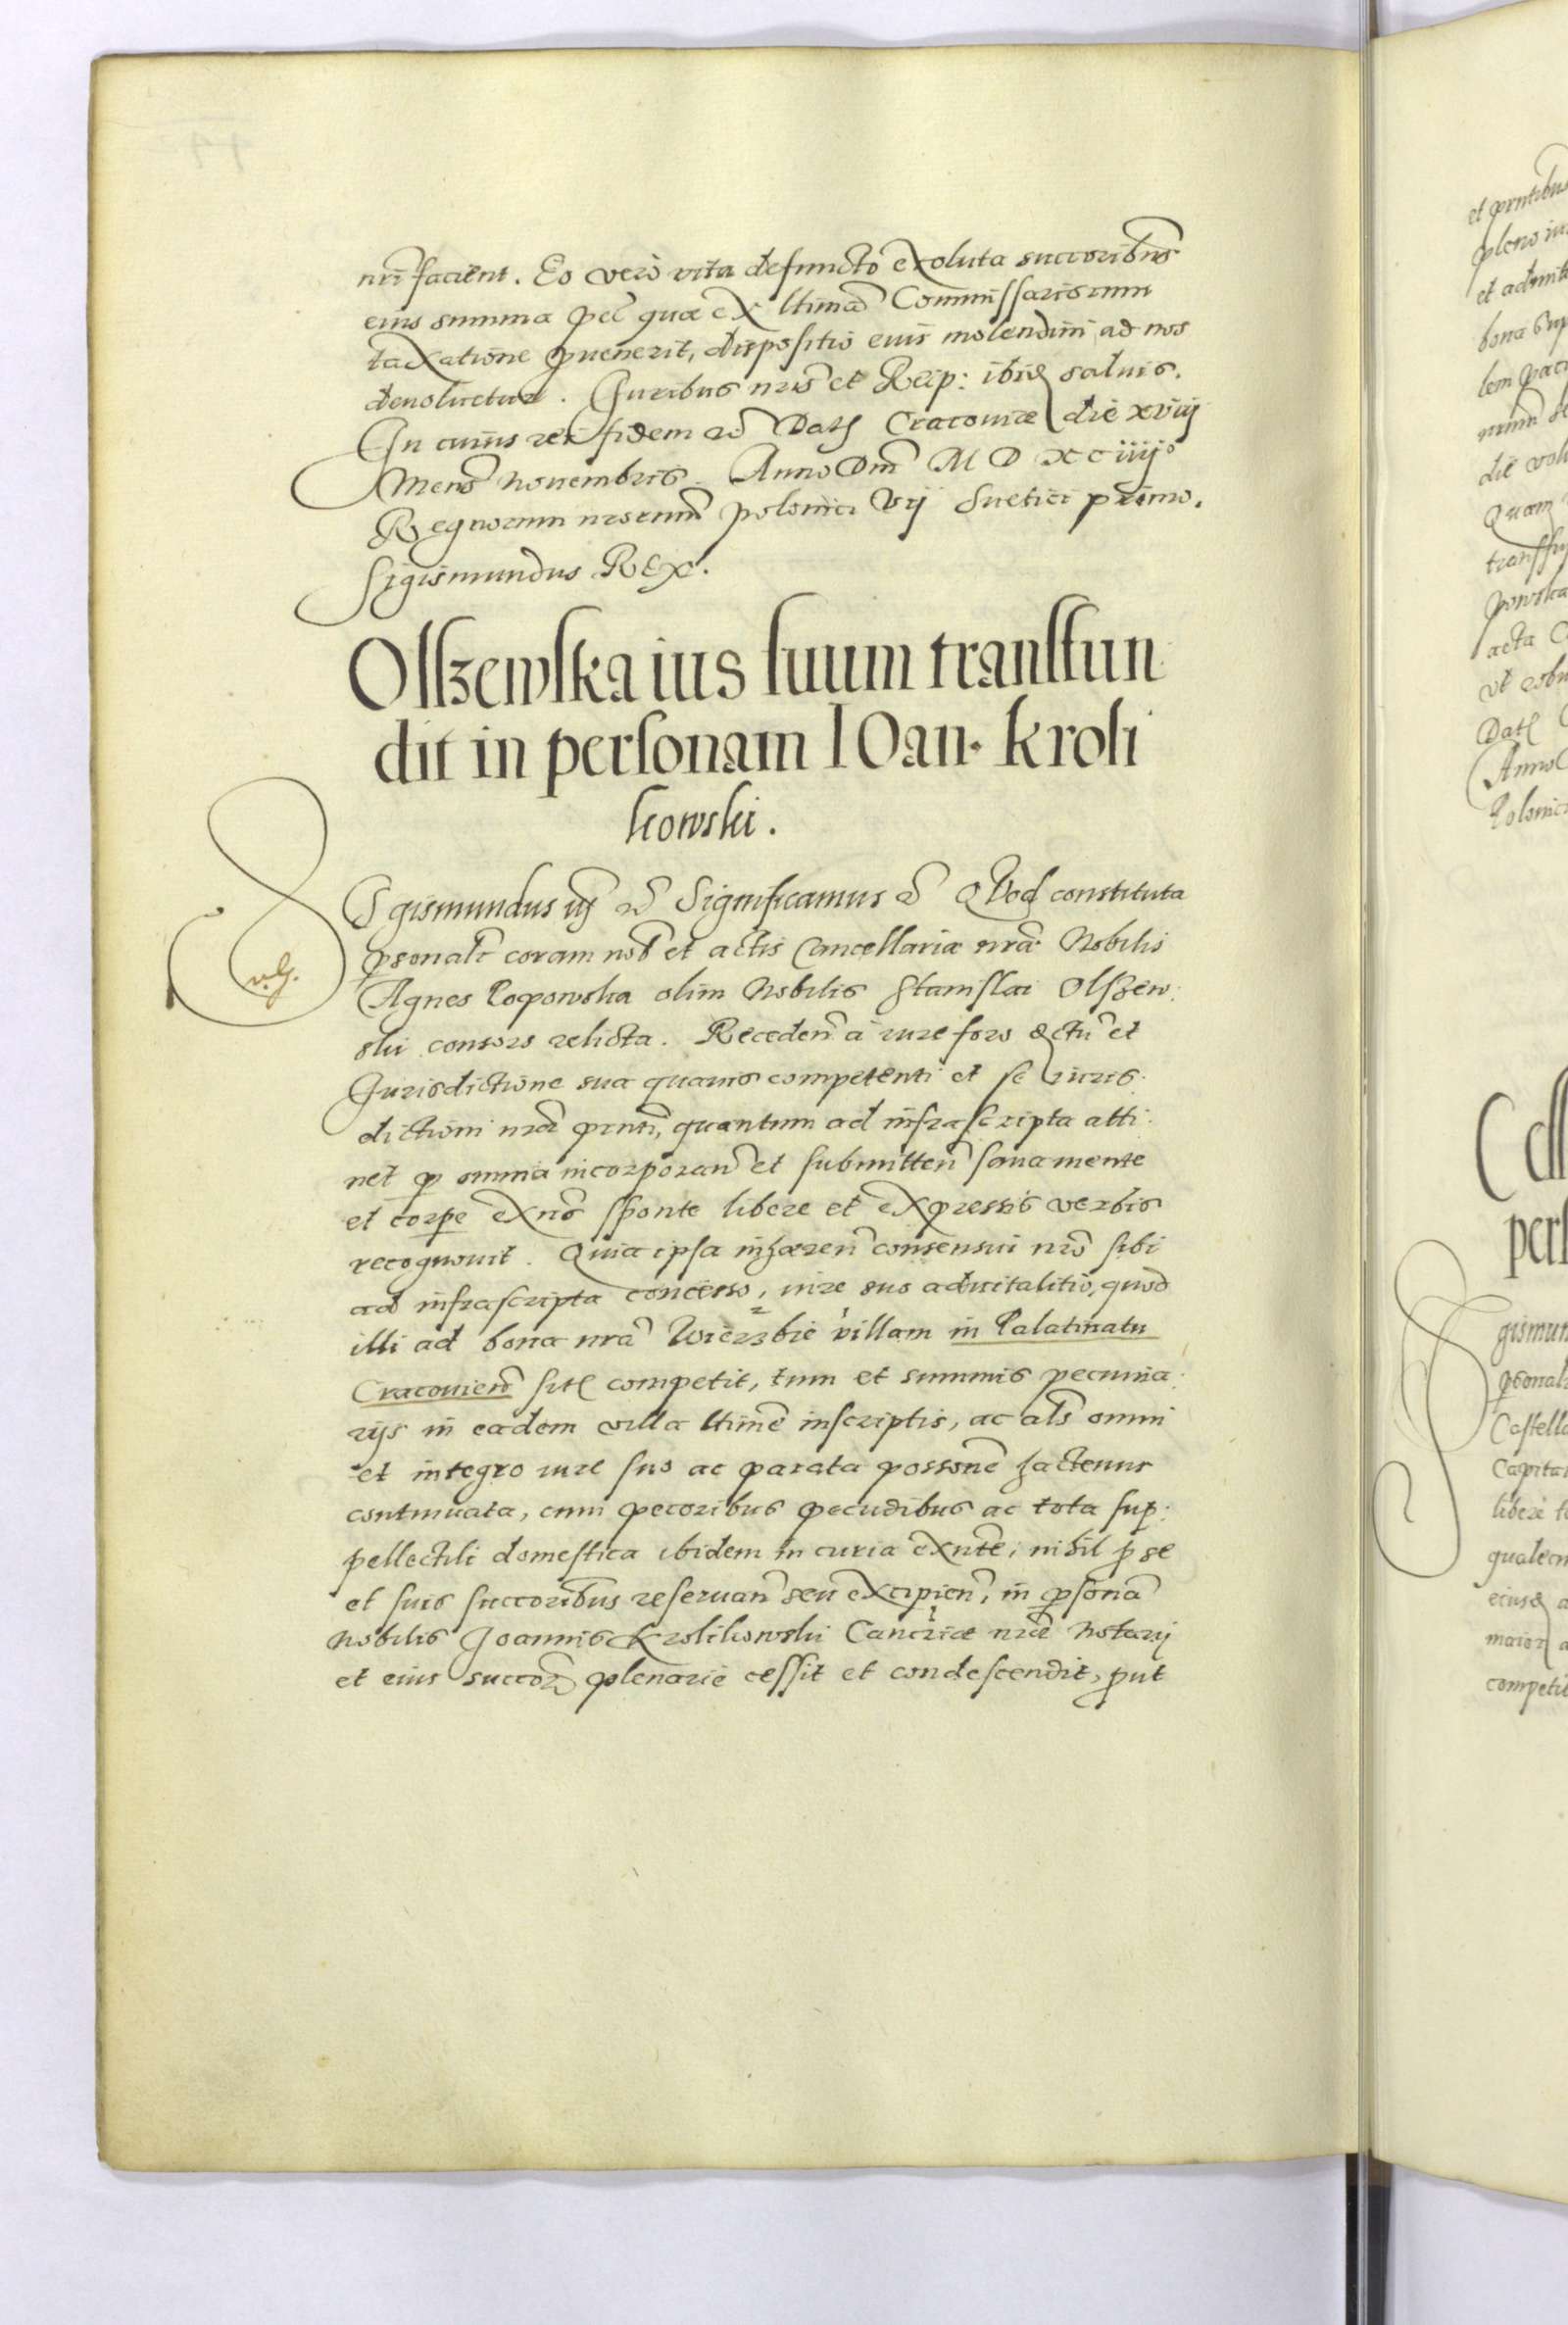 nri facient. Eo vero vita defuncto exoluta succoribus
eius summa pec quae ex ltima Commissariorum
taxatione pvenerit, dispositio euis molendini ad nos
devoluetur. Juribus nris et Reip: ibid salvis.
In cuius rei fidem etc Dat Cracoviae die xviij
Mens Novembris. Anno Dni M D XC iiij°
Regnorum nrorum Polonici Vij Suetici primo.
Sigismundus Rex.
Olszewska ius suum transfun
dit in personam IOan. Kroli
kowski.
Sigismundus iij etc Significamus etc Quod constituta
psonalr coram nob et actis Cancellariae nrae Nobilis
Agnes Popowska olim Nobilis Stanislai Olszew:
ski consors relicta. Receden a iure foro dctu et
Jurisdictione sua quavis competenti et se iuris:
dictioni nrae pnti, quantum ad infrascripta atti:
net p omnia incorporan et submitten sana mente
et corpe exns sponte libere et expressis verbis
recognovit. Quia ipsa inhaeren consensui nro sibi
ad infrascripta concesso, iure suo advitalitio, quod
illi ad bona nra Wierzbie villam in Palatinatu
Cracovien sit competit, tum et summis pecunia:
rijs in eadem villa ltime inscriptis, ac als omni
et integro iure suo ac parata possone hactenus
continuata, cum pecoribus pecudibus ac tota sup:
pellectili domestica ibidem in curia exnte, nihil p se
et suis succoribus reservan seu excipien, in psona
Nobilis Joannis Krolikowski Cancriae nrae Notarij
et eius succor plenarie cessit et condescendit, put
v. G.
et pntibus
pleno iu
et admit
bona sup
lem paci
die volu
Quam
transfu
powska
acta C
vt robu
Dat C
Anno
Polonic
Cell
pers
gismun
psonal
Castella
Capita
libere
qualecu
eiusd a
maior a
competit